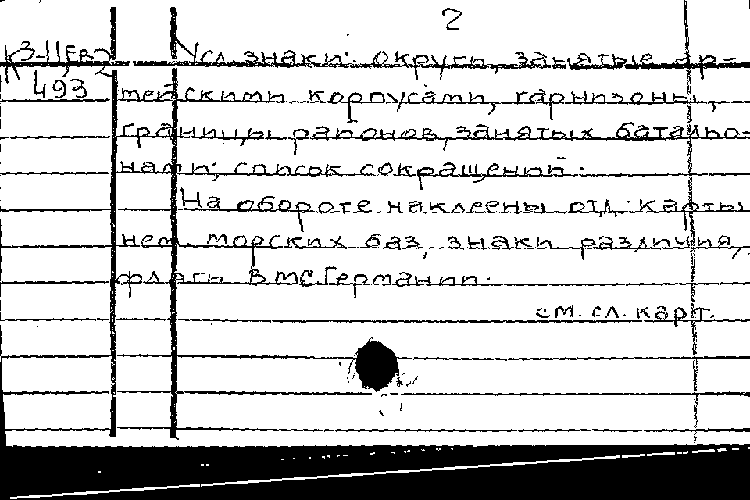 2
К 3-II, Ев2 Усл. знаки: округи, занятые ар-
493 мейскими корпусами, гарнизоны,
границы районов, занятых батальо-
нами; список сокращений.
На обороте наклеены отд. карты
нем. морских баз, знаки различия,
флаги ВМС Германии.
см. сл. карт.